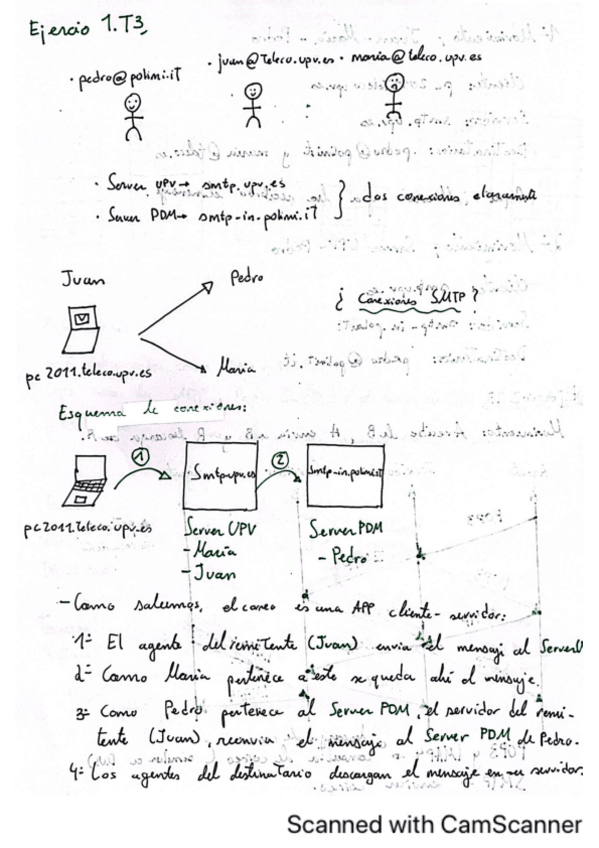 Ejercio 1.T3,
· pedro@polimi.iT
· juan@Teleco.upv.es
· maria@teleco.upv.es
· Server upv→ smtp.upv.es
· Server PDM→ smtp-in.polimi.iT
dos conexiones claramente
Juan
Pedro
¿ Conexiones SMTP ?
Maria
pc2011.teleco.upv.es
Esquema de conexiones:
1
2
Smtp.upv.es
Smtp-in.polimi.iT
pc2011.teleco.upv.es
Server UPV
- Maria
- Juan
Server PDM
- Pedro
- Como sabemos, el correo es una APP cliente-servidor:
1º El agente del remitente (Juan) envia el mensaje al ServerU
2º Como Maria pertenece a este se queda ahí el mensaje.
3º Como Pedro pertenece al Server PDM, el servidor del remi-
tente (Juan), reenvia el mensaje al Server PDM de Pedro.
4º Los agentes del destinatario descargan el mensaje en su servidor.
Scanned with CamScanner